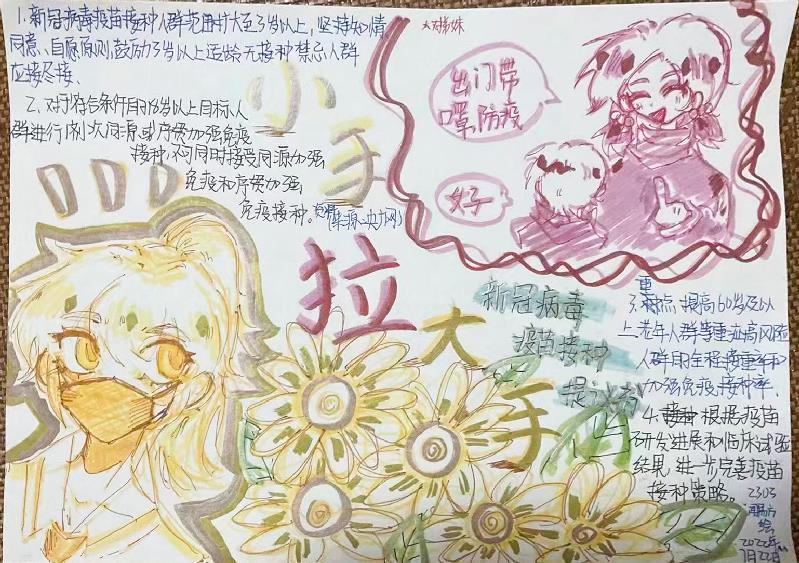 1.新冠病毒疫苗接种人群范围扩大至3岁以上,坚持知情
同意、自愿原则,鼓励3岁以上适龄无接种禁忌人群
应接尽接、
2、对于符合条件的18岁以上目标人
群进行1剂次同源或序贯加强免疫
接种,不可同时接受同源加强
免疫和序贯加强
免疫接种。
(来源:央广网)
小
手
拉
大
手
大棒妹
出门带
罩,防疫
女子
新冠病毒
疫苗接种
重
3.点提高60岁及以
上老年人群等重症高风险
人群的全程接种率和
加强免疫接种率.
4.根据疫苗
研发进展和临床试验
结果,进一步完善疫苗
接种策略。
2303
绘
2022年
1月22日